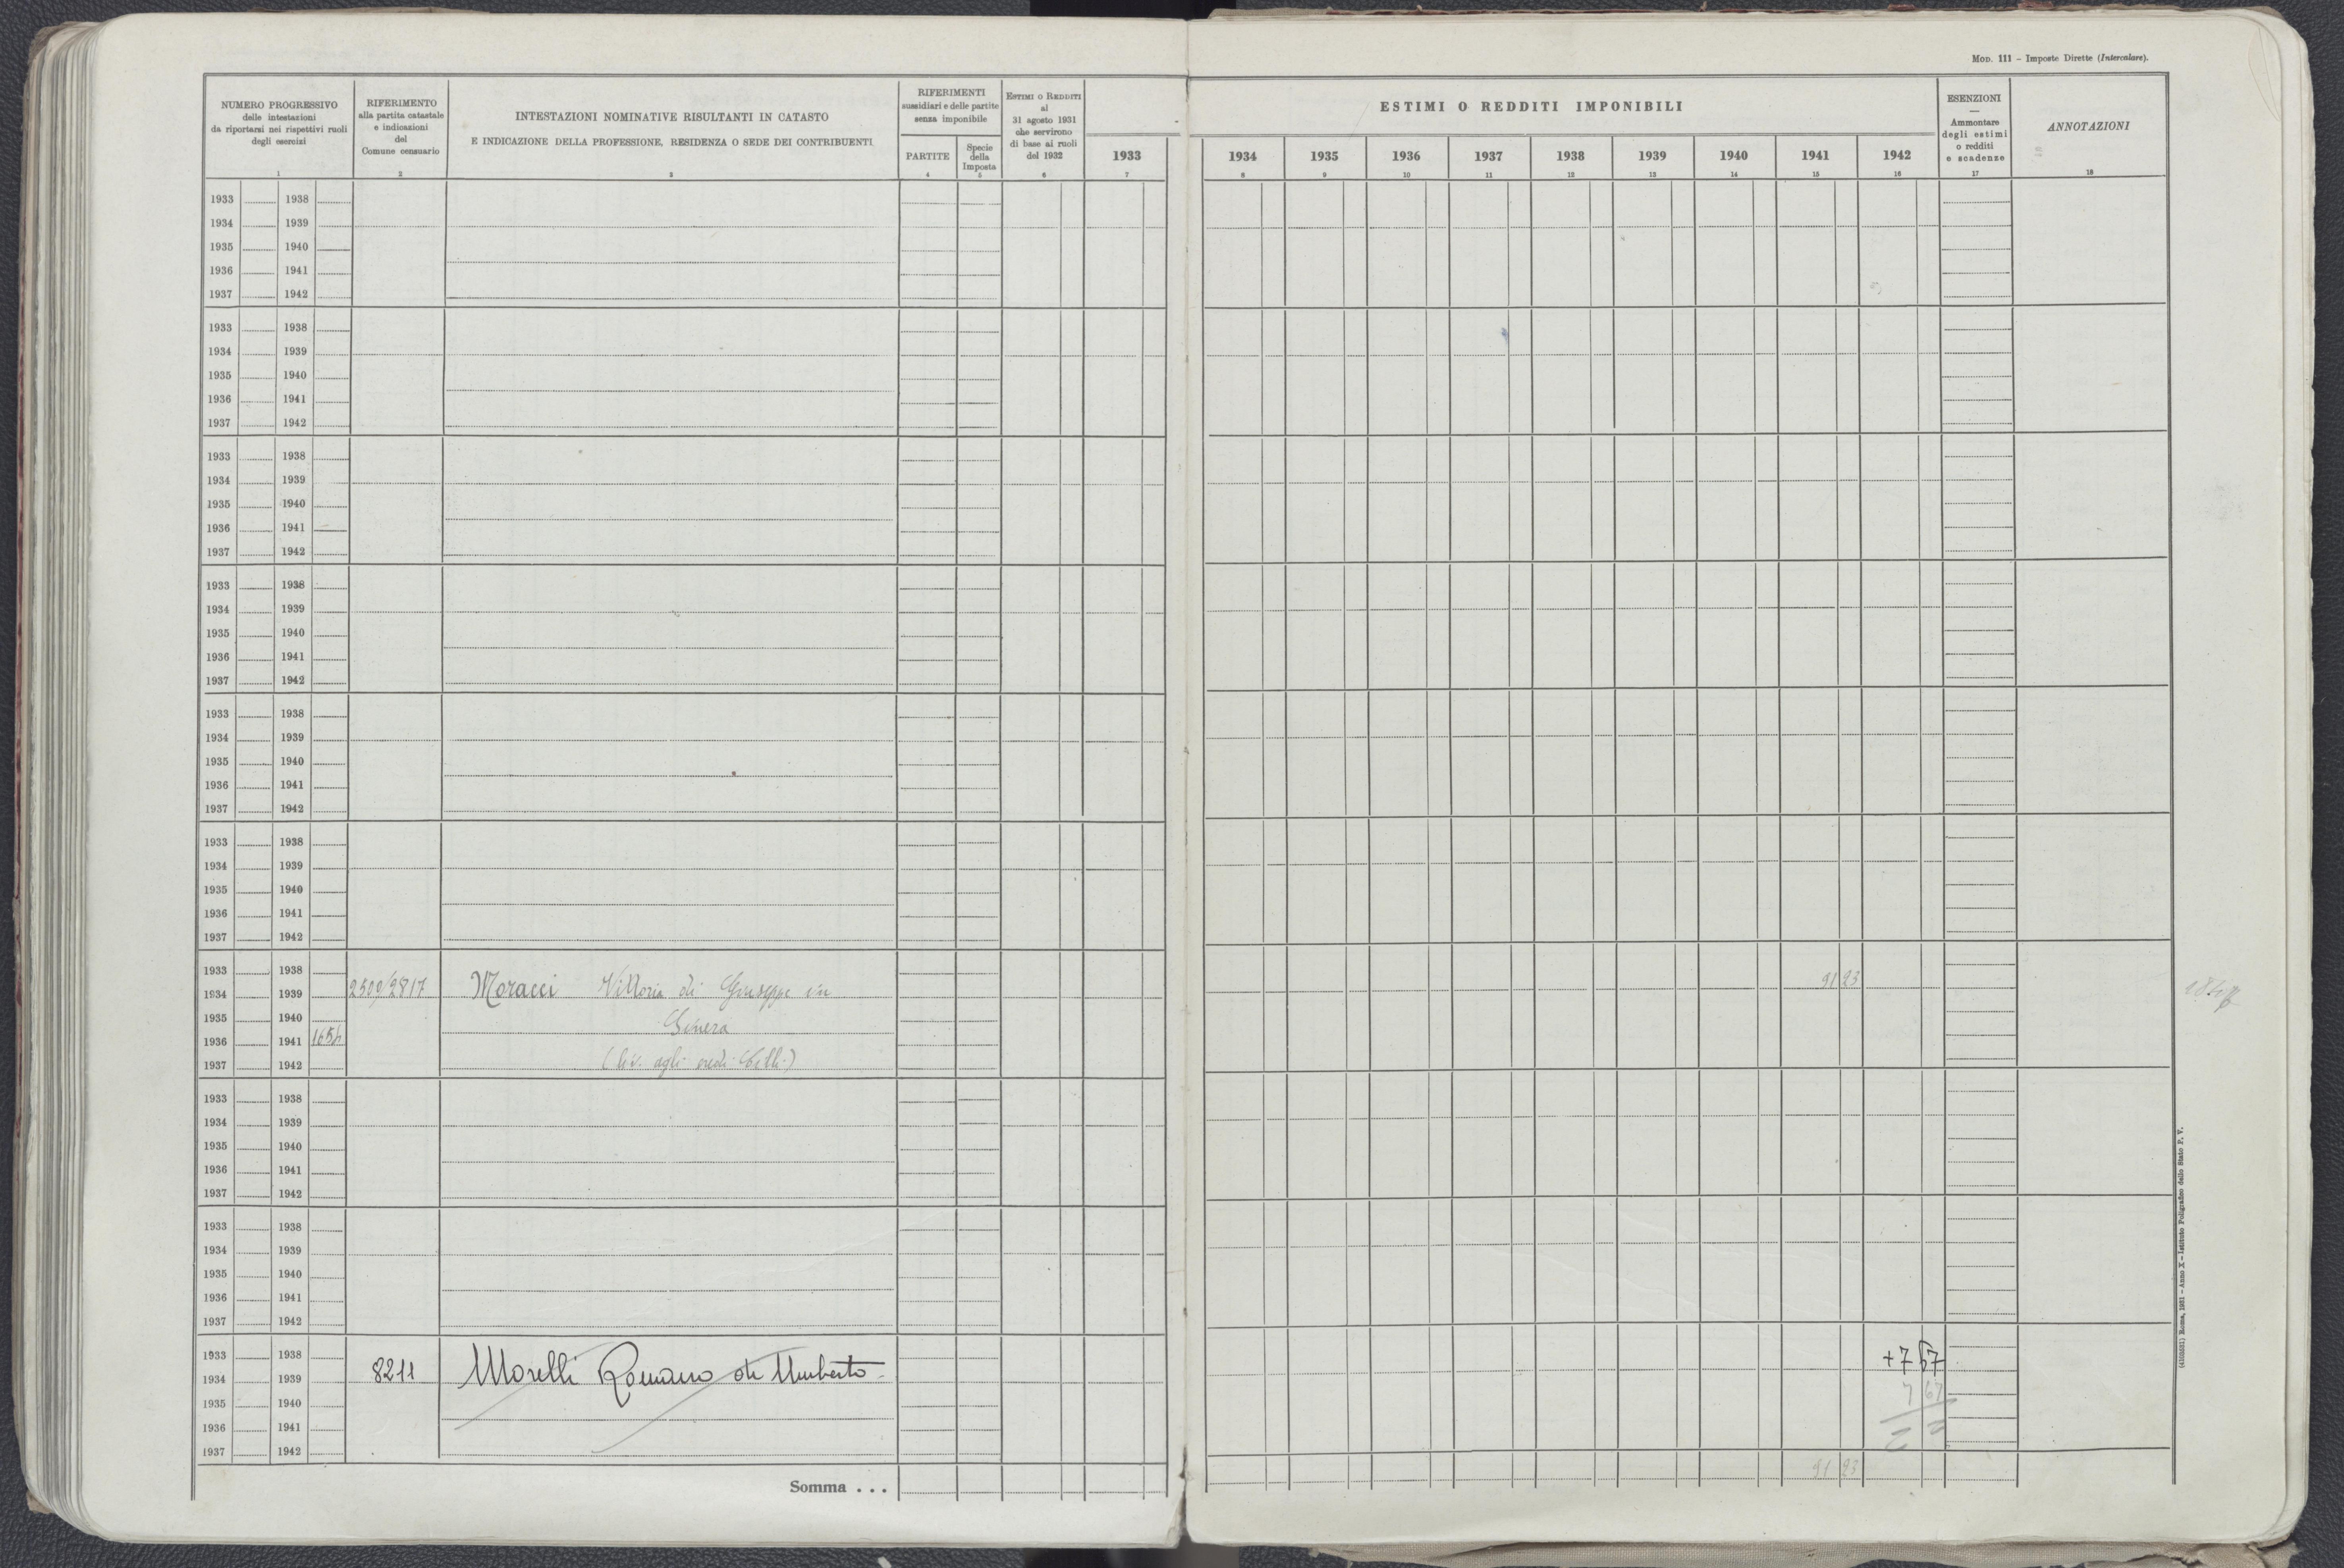 Mod. 111 – Imposte Dirette (Intercalare).
NUMERO PROGRESSIVO
delle intestazioni
da riportarsi nei rispettivi ruoli
degli esercizi
1
RIFERIMENTO
alla partita catastale
e indicazioni
del
Comune censuario
2
INTESTAZIONI NOMINATIVE RISULTANTI IN CATASTO
E INDICAZIONE DELLA PROFESSIONE, RESIDENZA O SEDE DEI CONTRIBUENTI
3
RIFERIMENTI
sussidiari e delle partite
senza imponibile
PARTITE
4
Specie
della
Imposta
5
ESTIMI O REDDITI
al
31 agosto 1931
che servirono
di base ai ruoli
del 1932
6
ESTIMI O REDDITI IMPONIBILI
1933 1934 1935 1936 1937 1938 1939 1940 1941 1942
7 8 9 10 11 12 13 14 15 16
ESENZIONI
—
Ammontare
degli estimi
o redditi
e scadenze
17
ANNOTAZIONI
18
1933 1938
1934 1939
1935 1940
1936 1941
1937 1942
1933 1938
1934 1939
1935 1940
1936 1941
1937 1942
1933 1938
1934 1939
1935 1940
1936 1941
1937 1942
1933 1938
1934 1939
1935 1940
1936 1941
1937 1942
1933 1938
1934 1939
1935 1940
1936 1941
1937 1942
1933 1938
1934 1939
1935 1940
1936 1941
1937 1942
1933 1938
1934 1939 2509/2817 Moracci Vittoria di Giuseppe in 91 23
1935 1940 Ginera
1936 1941 1654
1937 1942 (liv. agli eredi Celli)
1933 1938
1934 1939
1935 1940
1936 1941
1937 1942
1933 1938
1934 1939
1935 1940
1936 1941
1937 1942
1933 1938 +7 67
1934 1939 8211 Morelli Romano di Umberto
1935 1940 7 67
1936 1941
1937 1942
Somma . . . 91 23
(4103531) Roma, 1931 – Anno X – Istituto Poligrafico dello Stato P. V.